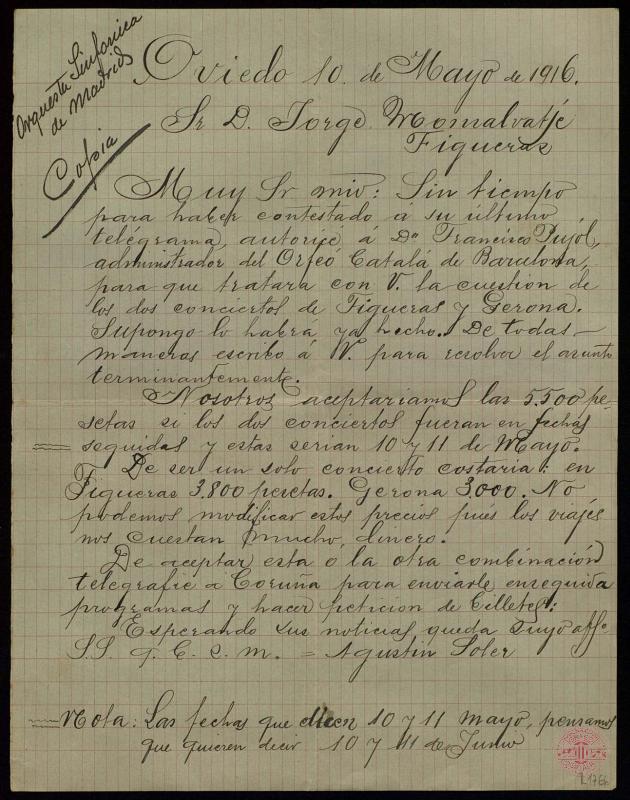 Orquesta Sinfonica
de Madrid
Copia
Oviedo 10 de Mayo de 1916.
Sr D. Jorge Monsalvatje
Figueras
Muy Sr mio: Sin tiempo
para haber contestado á su último
telégrama, autoricé á Dn Francisco Pujol,
administrador del Orfeó Catalá de Barcelona,
para que tratara con V. la cuestion de
los dos conciertos de Figueras y Gerona.
Supongo lo habrá ya hecho. De todas
maneras escribo á V. para resolver el asunto
terminantemente.
Nosotros aceptariamos las 5.500 pe-
setas si los dos conciertos fueran en fechas
seguidas y estas serian 10 y 11 de Mayo.
De ser un solo concierto costaria: en
Figueras 3.800 pesetas. Gerona 3.000. No
podemos modificar estos precios pués los viajes
nos cuestan mucho dinero.
De aceptar esta ó la otra combinación
telegrafie a Coruña para enviarle enseguida
programas y hacer peticion de billetes:
Esperando sus noticias queda suyo affo
S.S. q. b. s. m. = Agustin Soler
Nota: Las fechas que dicen 10 y 11 mayo, pensamos
que quieren decir 10 y 11 de Junio